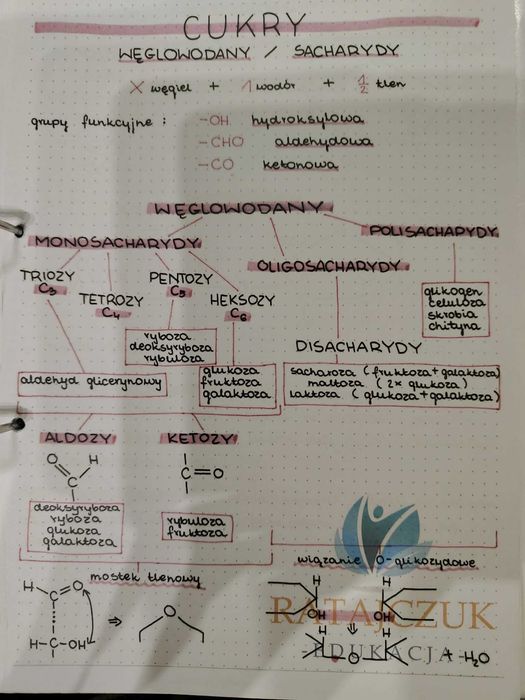 CUKRY
WĘGLOWODANY / SACHARYDY
X węgiel + 1 wodór + 1/2 tlen
grupy funkcyjne : -OH hydroksylowa
-CHO aldehydowa
-CO ketonowa
WĘGLOWODANY
MONOSACHARYDY
OLIGOSACHARYDY
POLISACHARYDY
TRIOZY
C3
TETROZY
C4
PENTOZY
C5
HEKSOZY
C6
glikogen
celuloza
skrobia
chityna
ryboza
deoksyryboza
rybuloza
DISACHARYDY
aldehyd glicerynowy
glukoza
fruktoza
galaktoza
sacharoza (fruktoza+galaktoza)
maltoza (2x glukoza)
laktoza (glukoza+galaktoza)
ALDOZY
KETOZY
O H
C
C=O
deoksyryboza
ryboza
glukoza
galaktoza
rybuloza
fruktoza
mostek tlenowy
wiązanie O-glikozydowe
H-C=O
H-C-OH
⇒
O
H H
OH OH
⇓
H H
O
+ H2O
RATAJCZUK
-EDUKACJA-